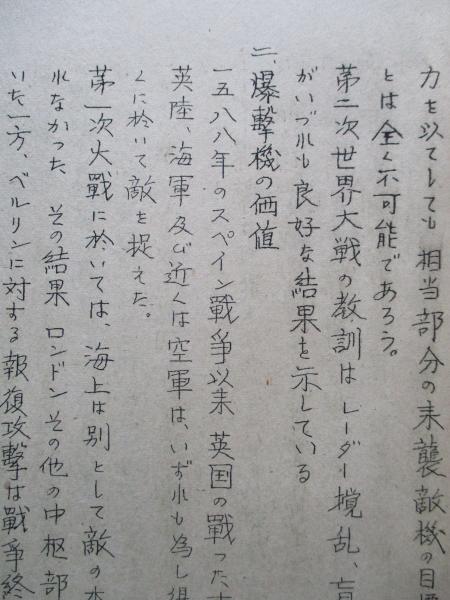 力を以てしても相当部分の来襲敵機の目標
とは全く不可能であろう。
第二次世界大戦の教訓はレーダー撹乱、盲
がいづれも良好な結果を示している
二、爆撃機の価値
一五八八年のスペイン戦争以来英国の戦った
英陸、海軍及び近くは空軍は、いずれも為し得
くに於いて敵を捉えた。
第一次大戦に於いては、海上は別として敵の本
れなかった その結果 ロンドンその他の中枢部
いた一方、ベルリンに対する報復攻撃は戦争終